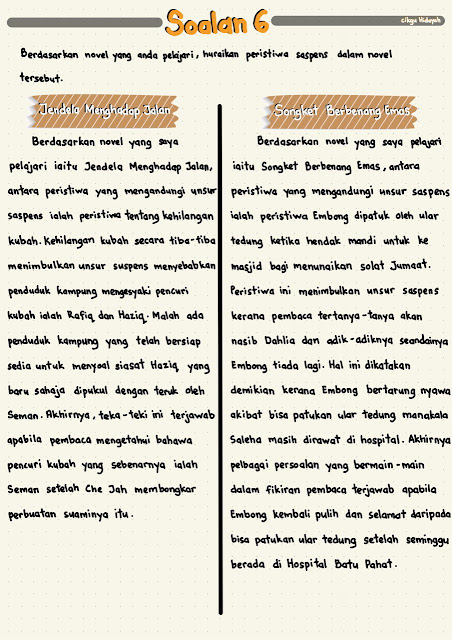 Soalan 6
cikgu Hidayah
Berdasarkan novel yang anda pelajari, huraikan peristiwa saspens dalam novel
tersebut.
Jendela Menghadap Jalan
Berdasarkan novel yang saya
pelajari iaitu Jendela Menghadap Jalan,
antara peristiwa yang mengandungi unsur
saspens ialah peristiwa tentang kehilangan
kubah. Kehilangan kubah secara tiba-tiba
menimbulkan unsur suspens menyebabkan
penduduk kampung mengesyaki pencuri
kubah ialah Rafiq dan Haziq. Malah ada
penduduk kampung yang telah bersiap
sedia untuk menyoal siasat Haziq yang
baru sahaja dipukul dengan teruk oleh
Seman. Akhirnya, teka-teki ini terjawab
apabila pembaca mengetahui bahawa
pencuri kubah yang sebenarnya ialah
Seman setelah Che Jah membongkar
perbuatan suaminya itu.
Songket Berbenang Emas
Berdasarkan novel yang saya pelajari
iaitu Songket Berbenang Emas, antara
peristiwa yang mengandungi unsur saspens
ialah peristiwa Embong dipatuk oleh ular
tedung ketika hendak mandi untuk ke
masjid bagi menunaikan solat Jumaat.
Peristiwa ini menimbulkan unsur saspens
kerana pembaca tertanya-tanya akan
nasib Dahlia dan adik-adiknya seandainya
Embong tiada lagi. Hal ini dikatakan
demikian kerana Embong bertarung nyawa
akibat bisa patukan ular tedung manakala
Saleha masih dirawat di hospital. Akhirnya
pelbagai persoalan yang bermain-main
dalam fikiran pembaca terjawab apabila
Embong kembali pulih dan selamat daripada
bisa patukan ular tedung setelah seminggu
berada di Hospital Batu Pahat.